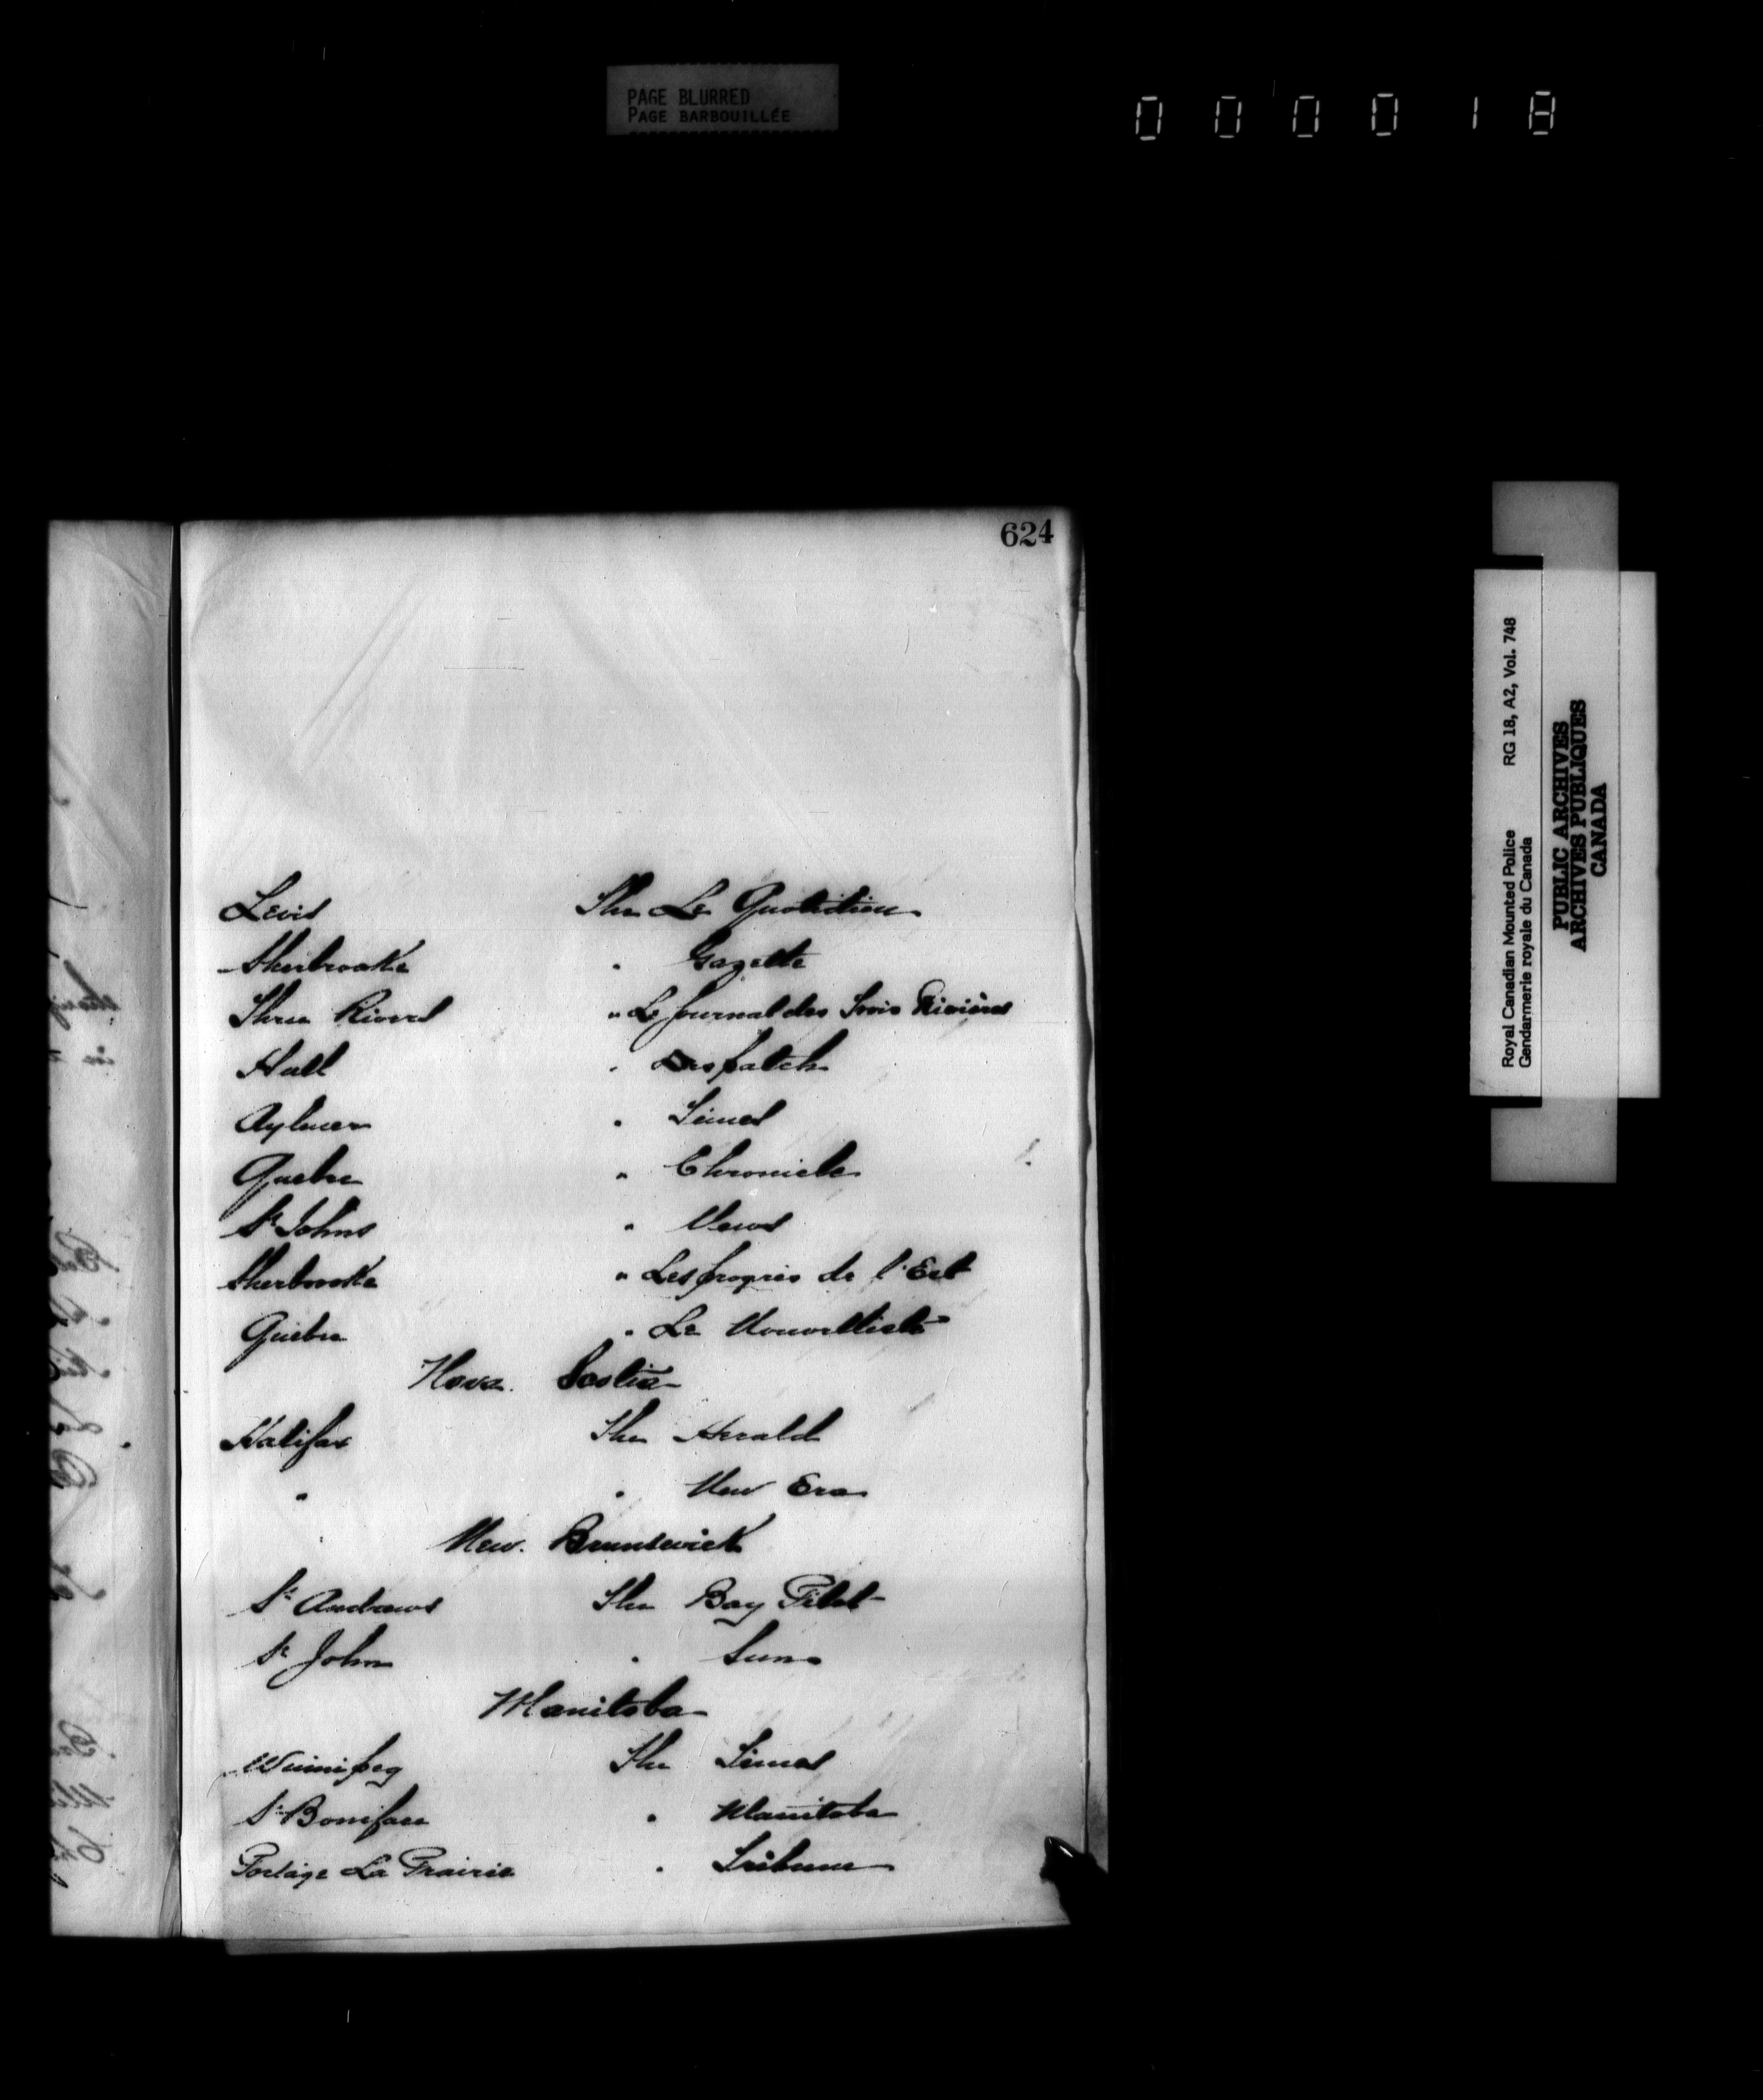 PAGE BLURRED
PAGE BARBOUILLÉE
000018
624
Levis The Le Quotidien
Sherbrooke " Gazette
Three Rivers " Le Journal des Trois Rivières
Hull " Despatch
Aylmer " Times
Quebec " Chronicle
St Johns " News
Sherbrooke " Les progrès de l'Est
Quebec " Le Nouvelliste
Nova Scotia
Halifax The Herald
" " New Era
New. Brunswick
St Andrews The Bay Pilot
St John " Sun
Manitoba
Winnipeg The Times
St Boniface " Manitoba
Portage La Prairie " Tribune
Royal Canadian Mounted Police RG 18, A2, Vol. 748
Gendarmerie royale du Canada
PUBLIC ARCHIVES
ARCHIVES PUBLIQUES
CANADA